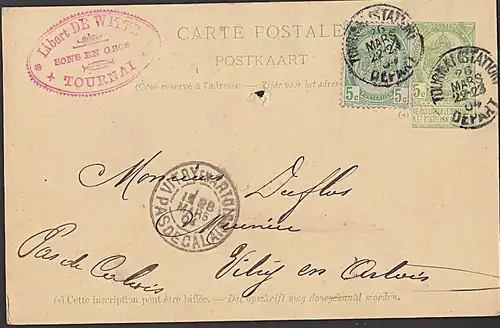 Libert DE WITTE
SONS EN GROS
TOURNAI
CARTE POSTALE
POSTKAART
(Côté réservé à l'adresse. — Zijde voor het adres
TOURNAI (STATION)
26
MARS
22-23
04
DEPART
5c 5c
TOURNAI (STATION)
26
MARS
22-23
04
DEPART
5c
(*)
Monsieur Duflos
Meunier
Vitry en Artois
Pas de Calais
VITRY-EN-ARTOIS
28
MARS
04
PAS DE CALAIS
(*) Cette inscription peut être biffée. — Dat opschrift mag doorgehaald worden.